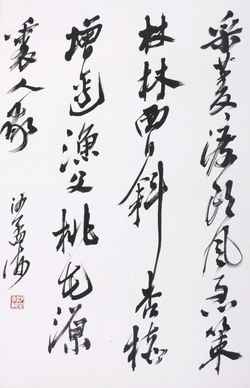 采菱渡頭風急策
杖林西日斜杏樹
壇邊漁父桃花源
裏人家
沙孟海